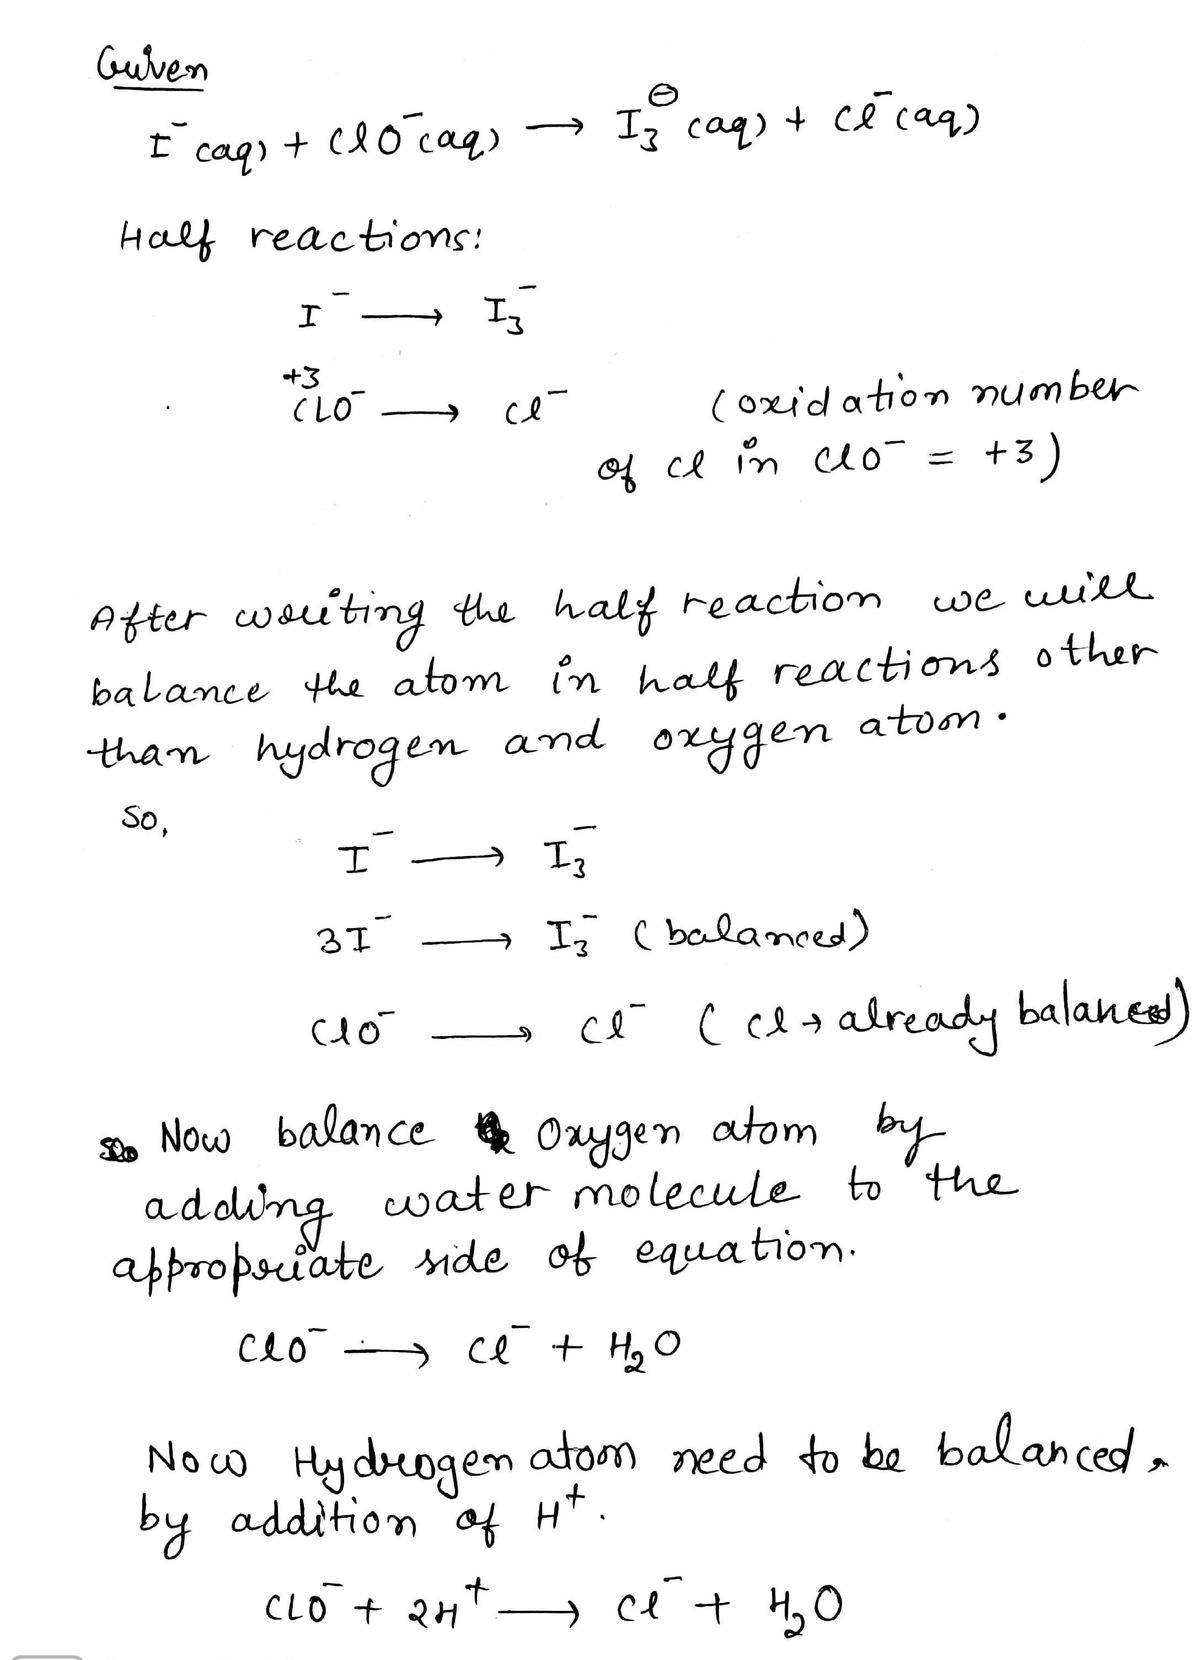 Given
I⁻(aq) + ClO⁻(aq) → I₃⊖(aq) + Cl⁻(aq)
Half reactions:
I⁻ → I₃⁻
+3
ClO⁻ → Cl⁻ (oxidation number
of Cl in ClO⁻ = +3)
After writing the half reaction we will
balance the atom in half reactions other
than hydrogen and oxygen atom.
So,
I⁻ → I₃⁻
3I⁻ → I₃⁻ (balanced)
ClO⁻ → Cl⁻ (Cl → already balanced)
Now balance Oxygen atom by
adding water molecule to the
appropriate side of equation.
ClO⁻ → Cl⁻ + H₂O
Now Hydrogen atom need to be balanced
by addition of H⁺.
ClO⁻ + 2H⁺ → Cl⁻ + H₂O